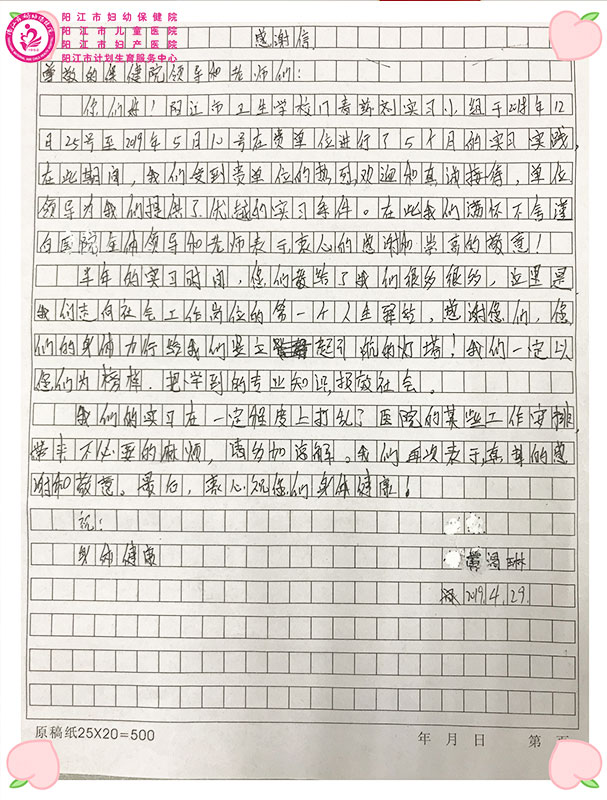 阳江市妇幼保健院
阳江市儿童医院
阳江市妇产医院
阳江市计划生育服务中心
感谢信
尊敬的保健院领导和老师们：
你们好！阳江市卫生学校门春药剂实习小组于2018年12
月25号至2019年5月10号在贵单位进行了5个月的实习实践，
在此期间，我们受到贵单位的热烈欢迎和真诚接待，单位
领导为我们提供了优越的实习条件。在此我们满怀不舍谨
向医院全体领导和老师表示衷心的感谢和崇高的敬意！
半年的实习时间，您们教给了我们很多很多，这里是
我们走向社会工作岗位的第一个人生驿站，感谢您们，您
们的身体力行给我们竖立起引航的灯塔！我们一定以
您们为榜样，把学到的专业知识报效社会。
我们的实习在一定程度上打乱了医院的某些工作安排，
带来不必要的麻烦，请多加谅解。我们再次表示真挚的感
谢和敬意。最后，衷心祝您们身体健康！
祝：
身体健康
2019.4.29.
原稿纸25X20=500
年 月 日 第 页